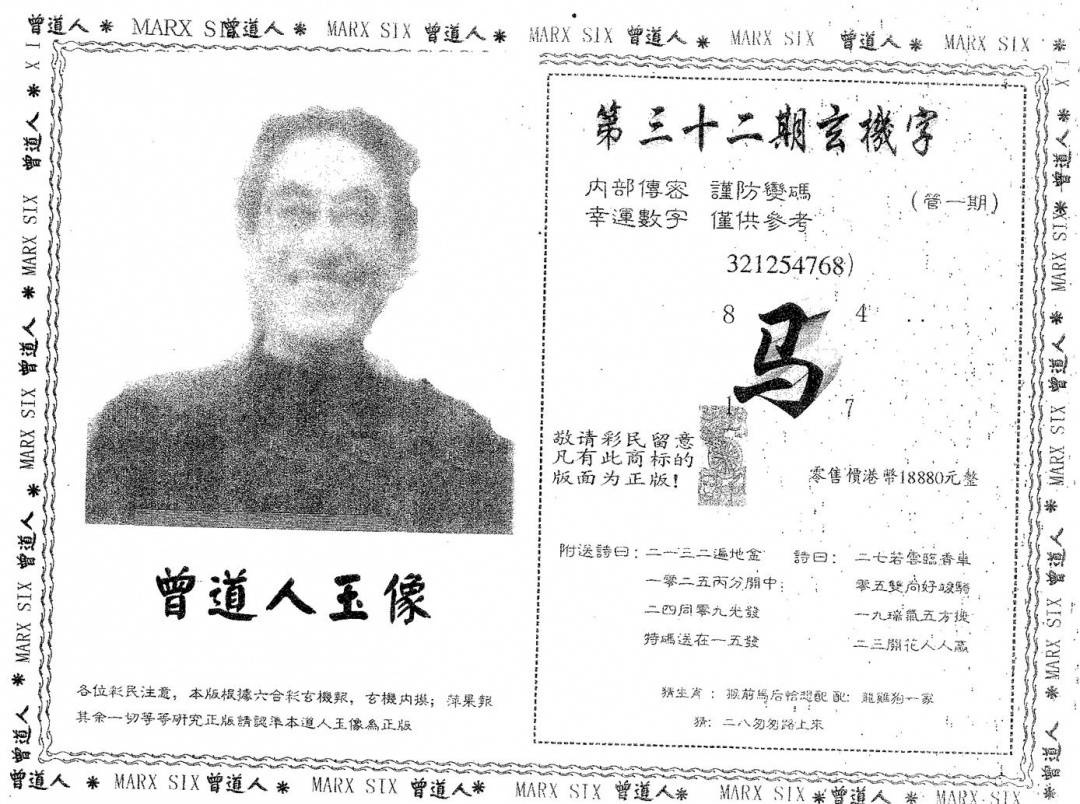 曾道人 * MARX SIX 曾道人 * MARX SIX 曾道人 * MARX SIX 曾道人 * MARX SIX 曾道人 * MARX SIX *
第三十二期玄機字
内部傳密 謹防變碼
幸運數字 僅供參考
(管一期)
321254768)
8 4
马
1 7
敬请彩民留意
凡有此商标的
版面为正版!
零售價港幣18880元整
附送詩曰: 二一三二遍地金
一零二五丙分開中
二四同零九光發
特碼送在一五發
詩曰: 二七若雲臨香車
零五雙向好峻騎
一九瑞氣五方
二三開花人人贏
猜生肖: 猴前馬后恰 配: 龍雞狗一家
猜: 二八匆匆路上來
曾道人玉像
各位彩民注意, 本版根據六合彩玄機報, 玄機内摸; 萍果報
其余一切等等研究正版請認準本道人玉像為正版
曾道人 * MARX SIX 曾道人 * MARX SIX 曾道人 * MARX SIX 曾道人 * MARX SIX 曾道人 * MARX SIX
曾道人 * MARX SIX 曾道人 * MARX SIX 曾道人 * MARX SIX 曾道人 *
曾道人 * MARX SIX 曾道人 * MARX SIX 曾道人 * MARX SIX 曾道人